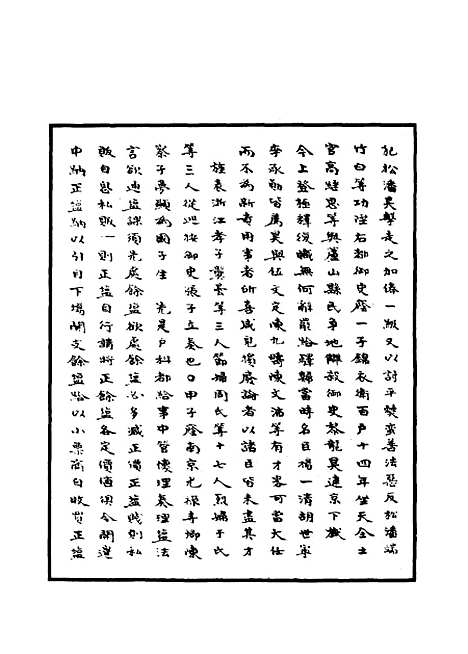 犯松潘昊擊走之加俸一級又以討平㸐蠻普法惡及松潘端
竹白等功陞右都御史廕一子錦衣衛百戶十四年坐天全土
官高𡊮恩等與蘆山縣民爭地讎殺御史黎龍昊逮京下獄
今上登極釋復職無何辭嚴給驛歸當時名臣楊一清胡世寧
李承勛皆薦昊與伍文定陳九疇陳文滿等有才畧可當大任
而不為新貴用事者所喜咸見擯廢論者以諸臣皆未盡其才
旌表浙江孝子龔芸等三人節婦周氏等十七人烈婦于氏
等三人從巡按御史張子立奏也○甲子廕南京光祿寺卿陳
察子夢顯為國子生　先是戶科都給事中管懷理奏理鹽法
言欲通鹽課須先處餘鹽欲處餘鹽必多減正價正鹽賤則私
販自息私販一則正鹽自行請將正餘鹽各定價值須令開邊
中納正鹽納以引目下場關支餘鹽給以小票商自收買正鹽